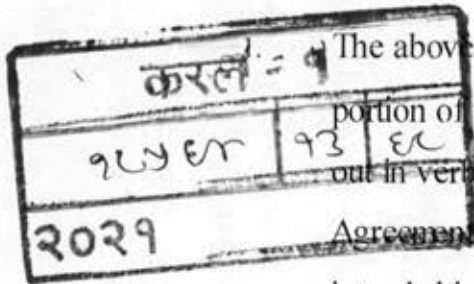 करल = १
१८५६४ १३ ६८
२०२१
The above
portion of
out in verb
Agreement